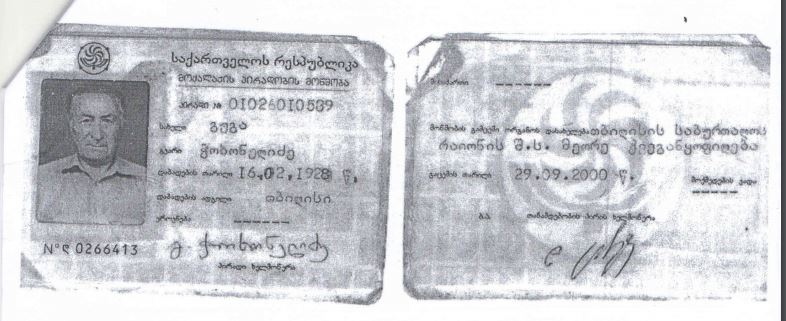 საქართველოს რესპუბლიკა
მოქალაქის პირადობის მოწმობა
პირადი № 01026010589
სახელი გუგა
გვარი
დაბადების თარიღი 16.02.1928 წ.
დაბადების ადგილი თბილისი
ეროვნება -------
N°წ 0266413
პირადი ხელმოწერა
-------
მოწმობის გამცემი ორგანოს დასახელება თბილისის საბურთალოს
რაიონის შ.ს. მეორე ქვეგანყოფილება
გაცემის თარიღი 29.09.2000 წ. მოქმედების ვადა
------
ბ.ა. თანამდებობის პირის ხელმოწერა